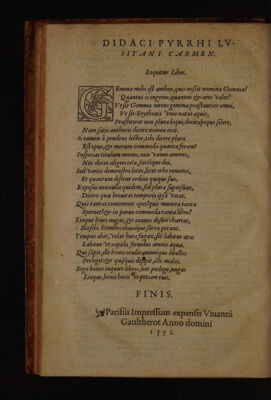 DIDACI PYRRHI LV-
SITANI CARMEN.
Loquitur Liber.
GEmma mihi est author, quis nescit nomina Gemmæ?
Quantus is ingenio, quantus & arte valet?
Vt sit Gemma nitens gemma præstantior omni,
Vt sit Erythreis vnus natat aquis,
Præstiterat non plura loqui, denisque silere,
Nam satis authoris dicere nomen erit.
Si tamen ô prudens lector, tibi dicere plura
Est opus, & mecum commoda quanta feram?
Inspicias titulum moneo, non vanus amores,
Nec doceo aligeri tela, facesque dei,
Sed varijs demonstro locis, facet orbe remotos,
Et quantum distent ordine quique suo,
Expositi nonnulla quidem, sed plura supersunt,
Dicere quæ breuitas temporis ipsa vetat.
Quis tantas contemnet opes? quis munera tanta
Spernet? & in paruo commoda tanta libro?
Linque leues nugas, & inanes desere chartas,
Illa sibi Scombri thurque sacra petant.
Tempus abit, volat hora fugax, sic labitur ætas
Labitur vt rapida fluuius amnis aqua.
Qui sapit, ille bonos oculis animoque libellos
Perlegit: & quisquis desipit, ille malos.
Ergo bonos inquire libros, hos perlege, nugas
Linque, boni boni vt petiam tuis.
FINIS.
Parisiis Impressum expensis Viuantii
Gaultherot Anno domini
1551.